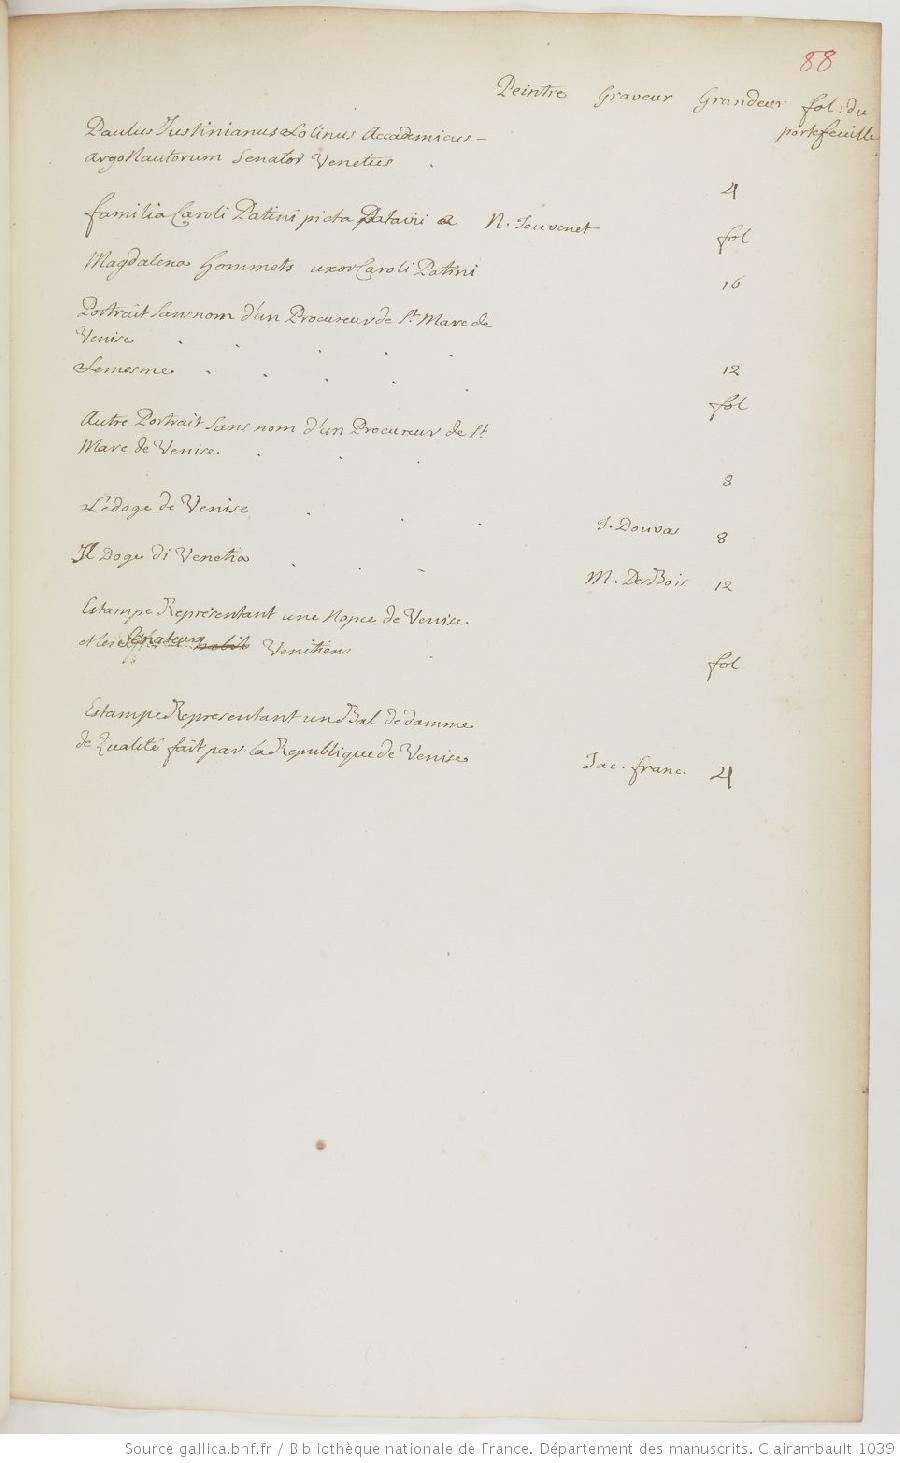 88
Peintre Graveur Grandeur fol. du
portefeuille
Paulus Justinianus Lolinus Accademicus -
argonautorum Senator Venetus . 4
familia Caroli Patini picta Patavii a N. Jouvenet fol
Magdalena Hommets uxor Caroli Patini 16
Portrait sans nom d'un Procureur de St. Marc de
Venise . . . . . 12
Le mesme . . . . . fol
Autre Portrait sans nom d'un Procureur de St
Marc de Venise. . . . 8
Le doge de Venise . . . J. Douvas 8
Il Doge di Venetia . . . M. DesBois 12
Estampe Représentant une Nopce de Venise.
et les Senateurs Venitiens . fol
Estampe Representant un Bal de damme
de Qualité fait par la Republique de Venise Jac. franc. 4
Source gallica.bnf.fr / Bibliothèque nationale de France. Département des manuscrits. Clairambault 1039